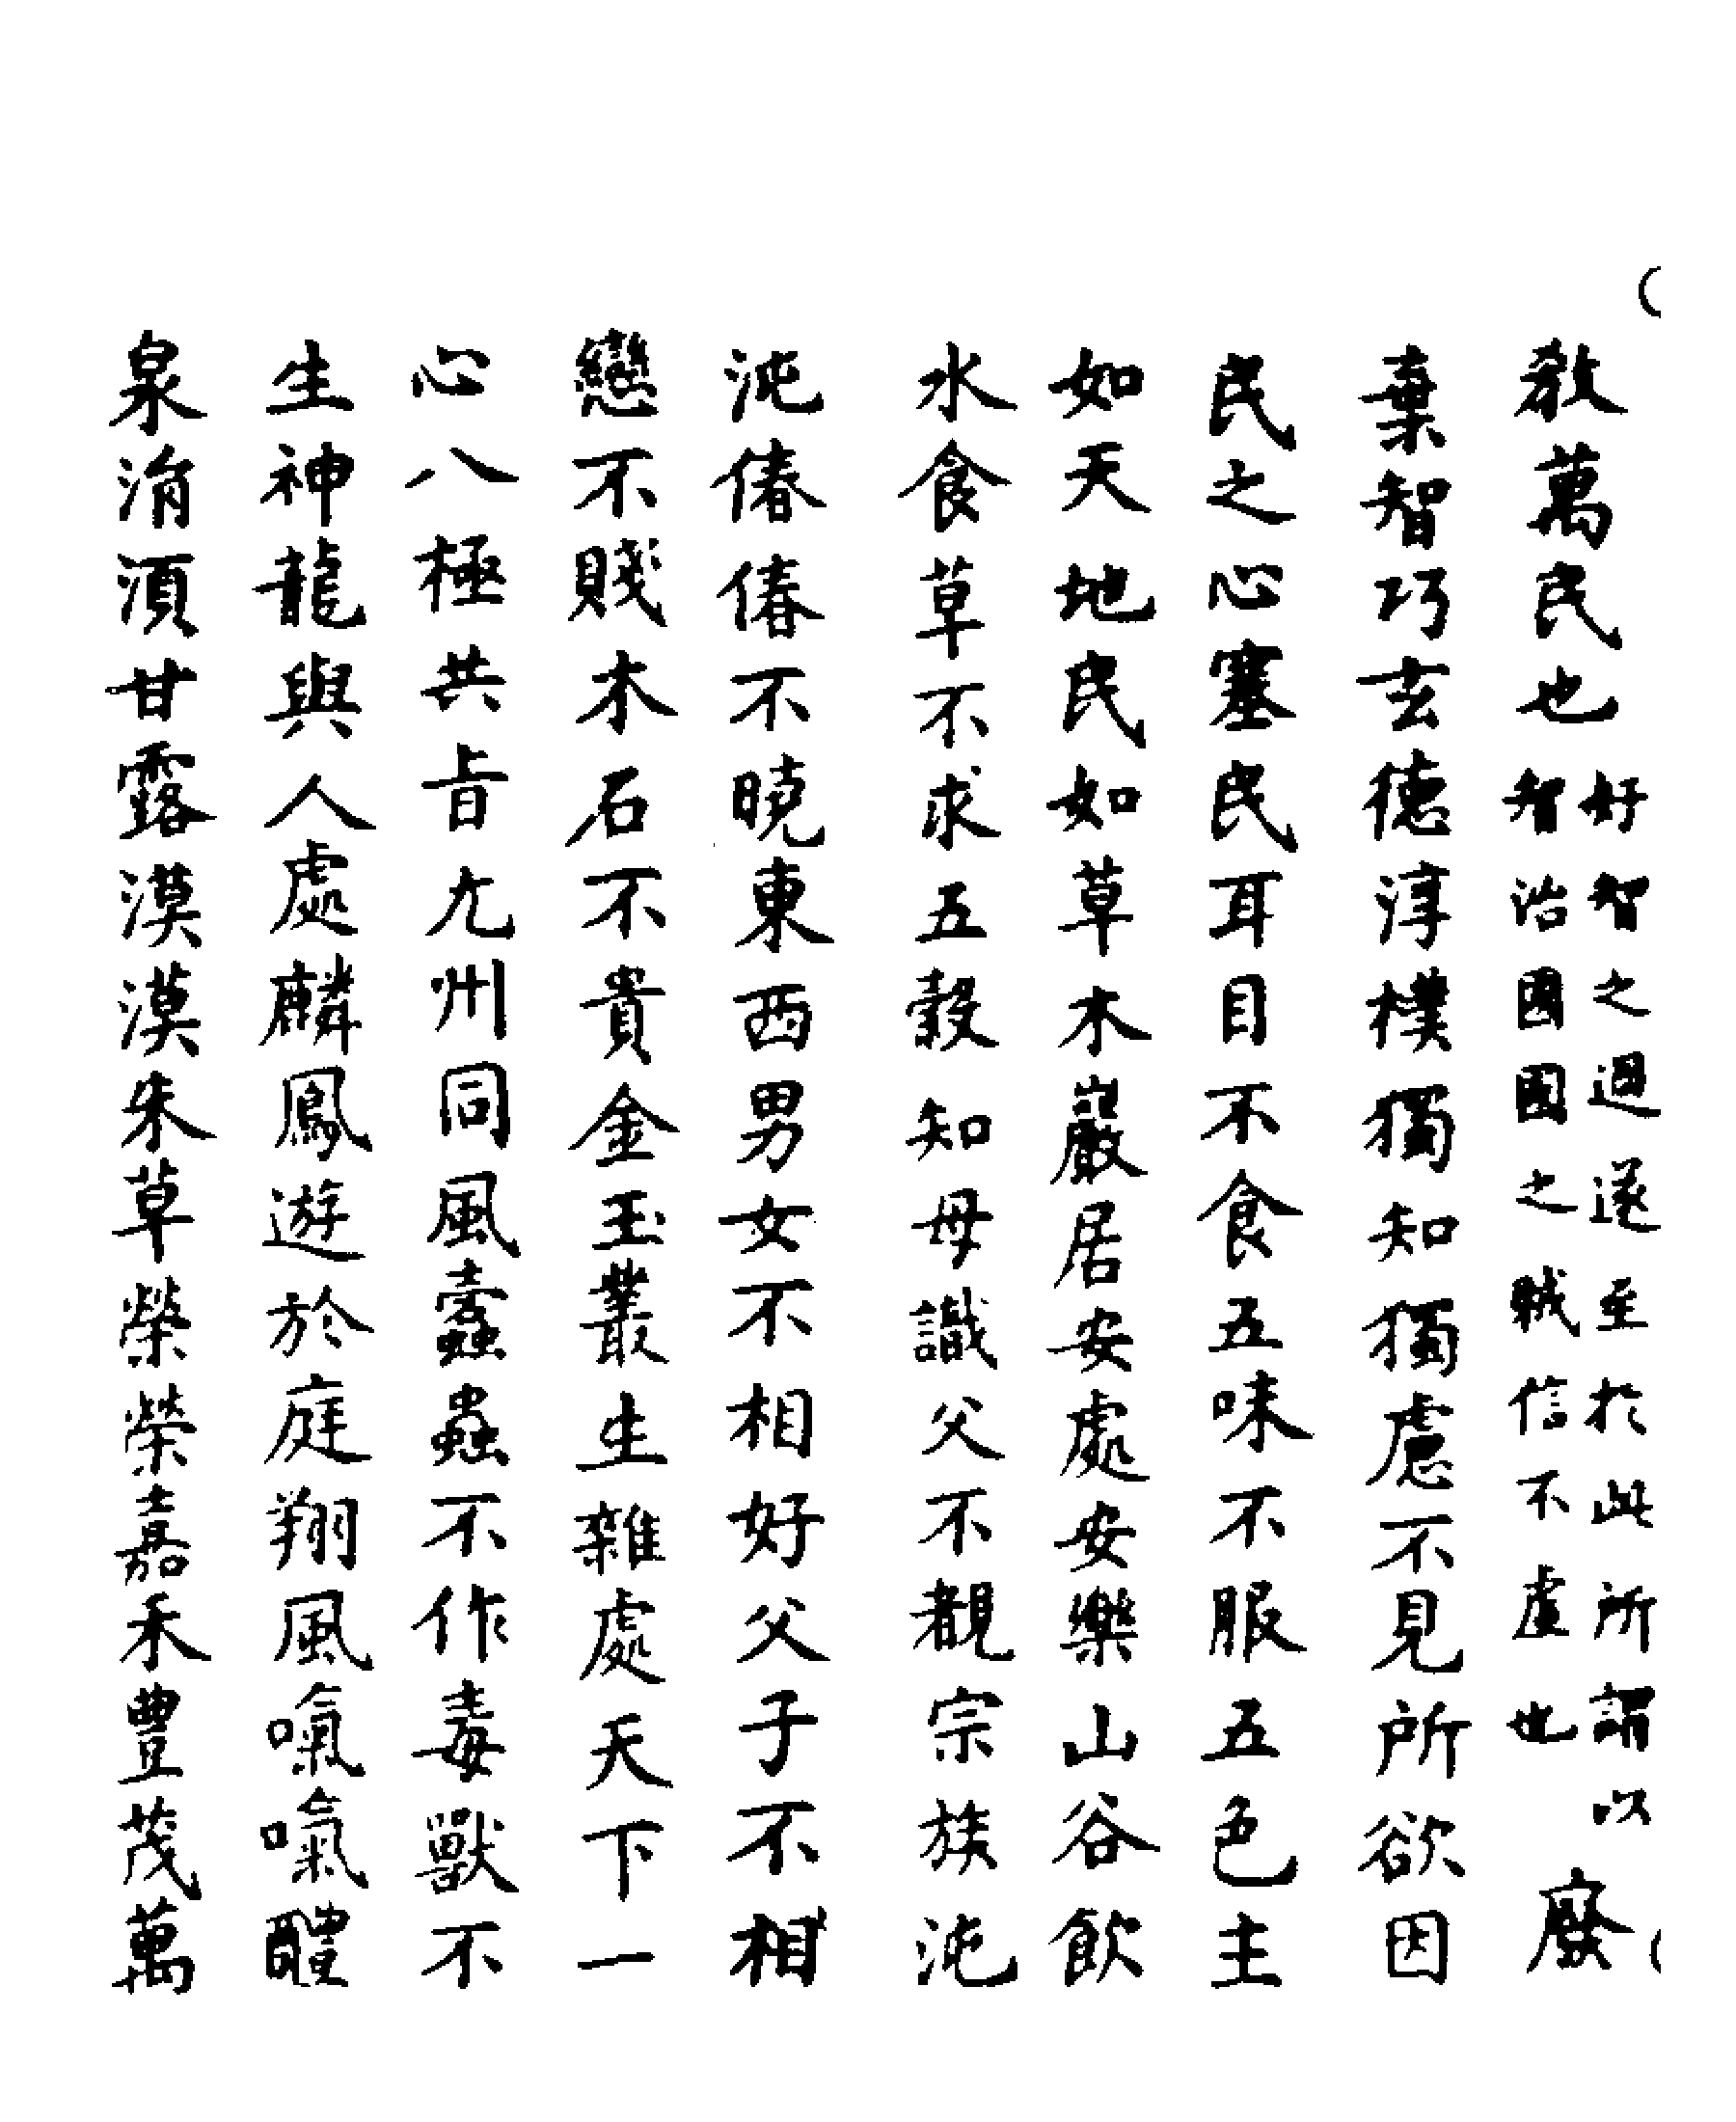 敎萬民也好智之過遂至於此所謂以智治國國之賊信不虛也廢
棄智巧玄德淳樸獨知獨慮不見所欲因
民之心塞民耳目不食五味不服五色主
如天地民如草木巖居安處安樂山谷飲
水食草不求五穀知母識父不覩宗族沌
沌偆偆不曉東西男女不相好父子不相
戀不賤木石不貴金玉叢生雜處天下一
心八極共旨九州同風蠹蟲不作毒獸不
生神龍與人處麟鳳遊於庭翔風醴
泉涓湏甘露漠漠朱草榮榮嘉禾豐茂萬